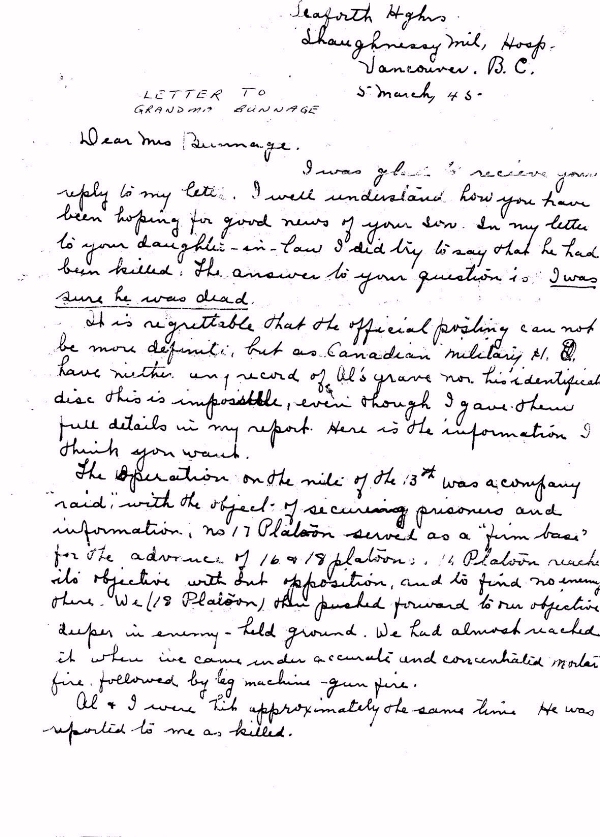 Seaforth Hghrs.
Shaughnessy Mil, Hosp.
Vancouver. B.C.
5 March, 45-
LETTER TO
GRANDMA BUNNAGE
Dear Mrs Bunnage.
I was glad to recieve your
reply to my lette. I well understand how you have
been hoping for good news of your son. In my letter
to your daughter-in-law I did try to say that he had
been killed. The answer to your question is I was
sure he was dead.
It is regrettable that the official posting can not
be more definite, but as Canadian Military H.Q.
have neither any record of Al's grave nor his identificat
disc this is impossible, even though I gave them
full details in my report. Here is the information I
think you want.
The Operation on the nite of the 13th was a company
"raid", with the object of securing prisoners and
information, no 17 Platoon served as a "firm base"
for the advance of 16 & 18 platoons. 16 Platoon reache
its objective with out opposition, and to find no enemy
there. We (18 Platoon) then pushed forward to our objective
deeper in enemy-held ground. We had almost reached
it when we came under accurate and concentrated mortar
fire, followed by machine-gun fire.
Al & I were hit approximately the same time He was
reported to me as killed.